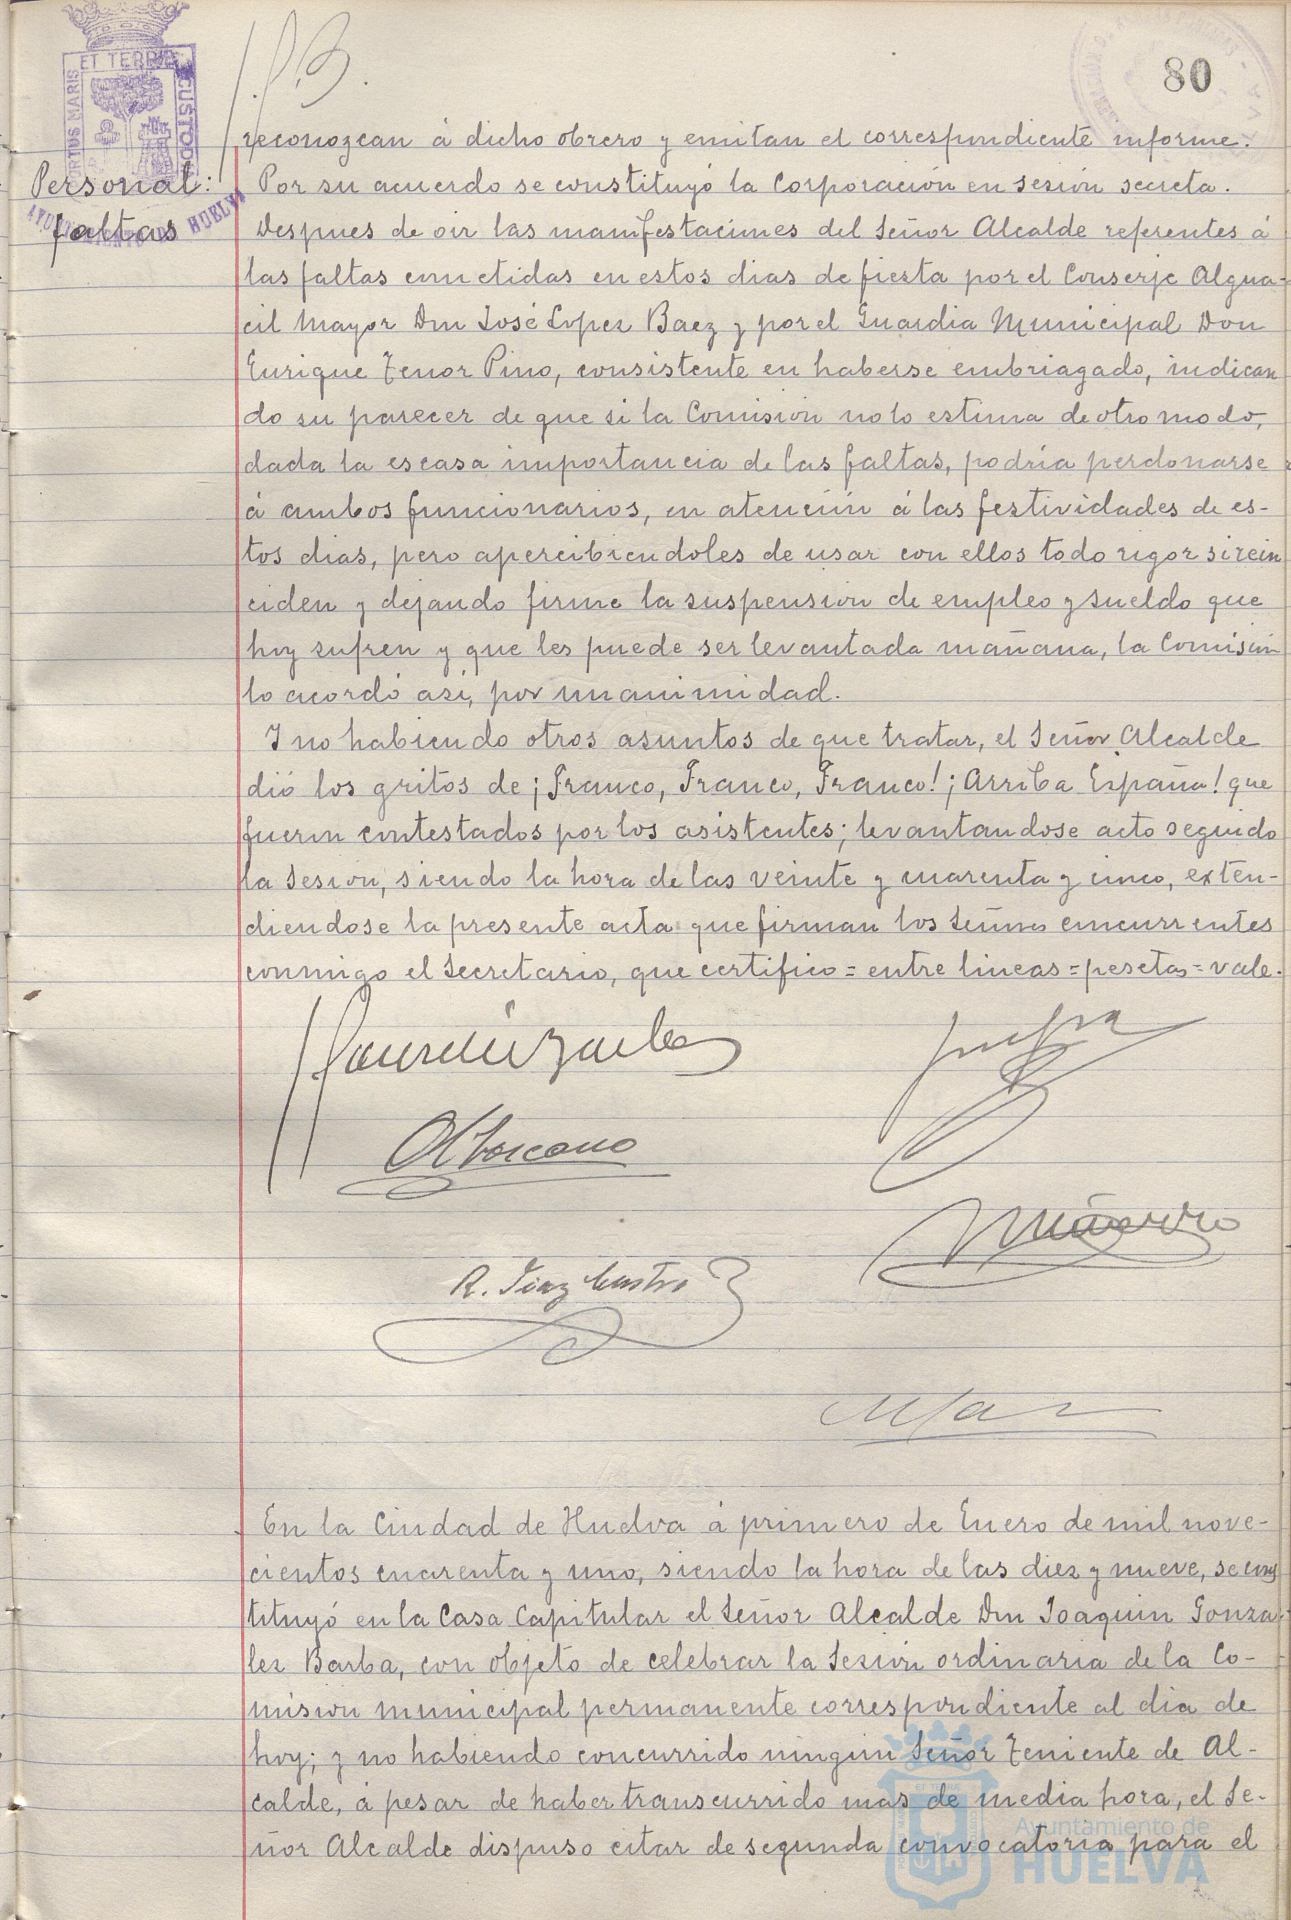 80
PORTUS MARIS ET TERRAE CUSTODIA
AYUNTAMIENTO DE HUELVA
reconozcan á dicho obrero y emitan el correspondiente informe.
Personal:
faltas
Por su acuerdo se constituyó la Corporación en sesión secreta.
Despues de oir las manifestaciones del Señor Alcalde referentes á
las faltas cometidas en estos dias de fiesta por el Conserje Algua-
cil Mayor Don José Lopez Baez y por el Guardia Municipal Don
Enrique Tenor Pino, consistente en haberse embriagado, indican
do su parecer de que si la Comisión no lo estima de otro modo,
dada la escasa importancia de las faltas, podría perdonarse
á ambos funcionarios, en atención á las festividades de es-
tos dias, pero apercibiendoles de usar con ellos todo rigor si rein
ciden y dejando firme la suspensión de empleo y sueldo que
hoy sufren y que les puede ser levantada mañana, la Comisión
lo acordó así, por unanimidad.
Y no habiendo otros asuntos de que tratar, el Señor Alcalde
dió los gritos de ¡Franco, Franco, Franco! ¡Arriba España! que
fueron contestados por los asistentes; levantandose acto seguido
la sesión, siendo la hora de las veinte y cuarenta y cinco, exten-
diendose la presente acta que firman los Señores concurrentes
conmigo el Secretario, que certifico = entre lineas = pesetas = vale.
R. Diaz Castro
En la Ciudad de Huelva á primero de Enero de mil nove-
cientos cuarenta y uno, siendo la hora de las diez y nueve, se cons
tituyó en la Casa Capitular el Señor Alcalde Don Joaquin Gonza-
lez Barba, con objeto de celebrar la Sesión ordinaria de la Co-
misión municipal permanente correspondiente al dia de
hoy; y no habiendo concurrido ningun Señor Teniente de Al-
calde, á pesar de haber transcurrido mas de media hora, el Se-
ñor Alcalde dispuso citar de segunda convocatoria para el
Ayuntamiento de
HUELVA